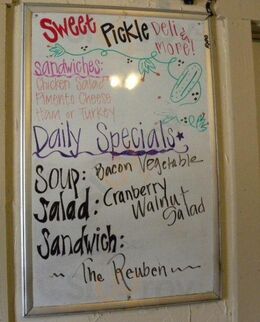 Sweet Pickle Deli &
more!
Sandwiches:
Chicken Salad
Pimento Cheese
Ham or Turkey
Daily Specials
Soup: Bacon Vegetable
Salad: Cranberry
Walnut
Salad
Sandwich:
The Reuben